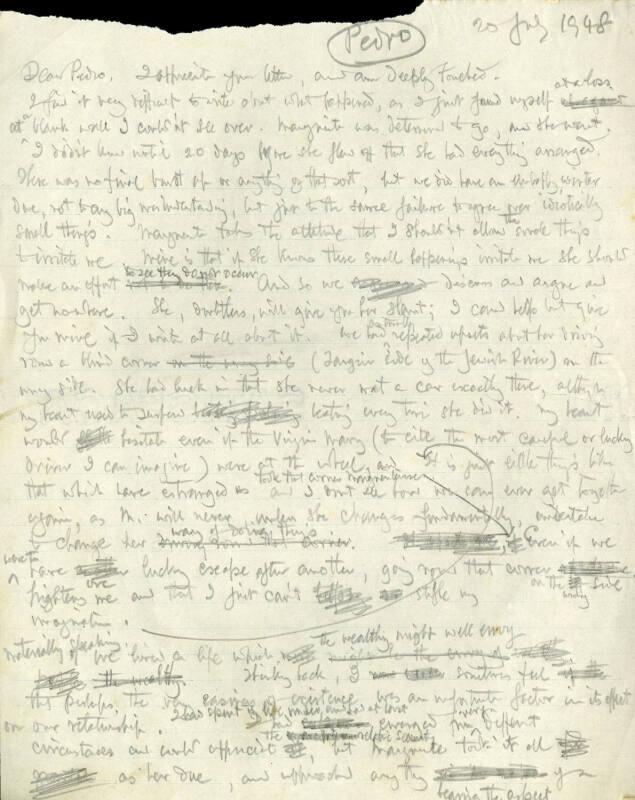 Pedro
20 July 1948
Dear Pedro, I appreciate your letter, and am deeply touched.
I find it very difficult to write about what happened, as I just found myself at a loss
at a blank wall I couldn't see over. Marguerite was determined to go, and she went.
I didn't know until 20 days before she flew off that she had everything arranged.
There was no final bust up or anything of that sort, but we did have an unhappy winter
due, not to any big misunderstanding, but just to the same failure to agree over idiotically
small things. Marguerite takes the attitude that I should not allow the small things
to irritate me. Mine is that if she knows these small happenings irritate me she should
make an effort to see they do not occur. And so we discuss and argue and
get nowhere. She, doubtless, will give you her slant; I can't help but give
you mine if I write at all about it. We had repeated upsets about her driving
round a blind corner (Tangier side of the Jewish River) on the
wrong side. She had luck in that she never met a car exactly there, although
my heart used to suspend beating every time she did it. My heart
would hesitate even if the Virgin Mary (to cite the most careful or lucky
driver I can imagine) were at the wheel, and took that corner It is just little things like
that which have estranged us and I don't see how we can ever get together
again, as M. will never, unless she changes fundamentally, undertake
to change her way of doing things. Even if we
were to have one lucky escape after another, going round that corner on the wrong side
frightens me and that I just can't stifle my
imagination.
Materially speaking we lived a life which the wealthy might well envy
Thinking back, I sometimes feel
that perhaps the very easiness of existence was an unfortunate factor in its effect
on our relationship. I had spent emerged from different
circumstances and could appreciate it, but Marguerite took it all
as her due, and approached anything
bearing the aspect